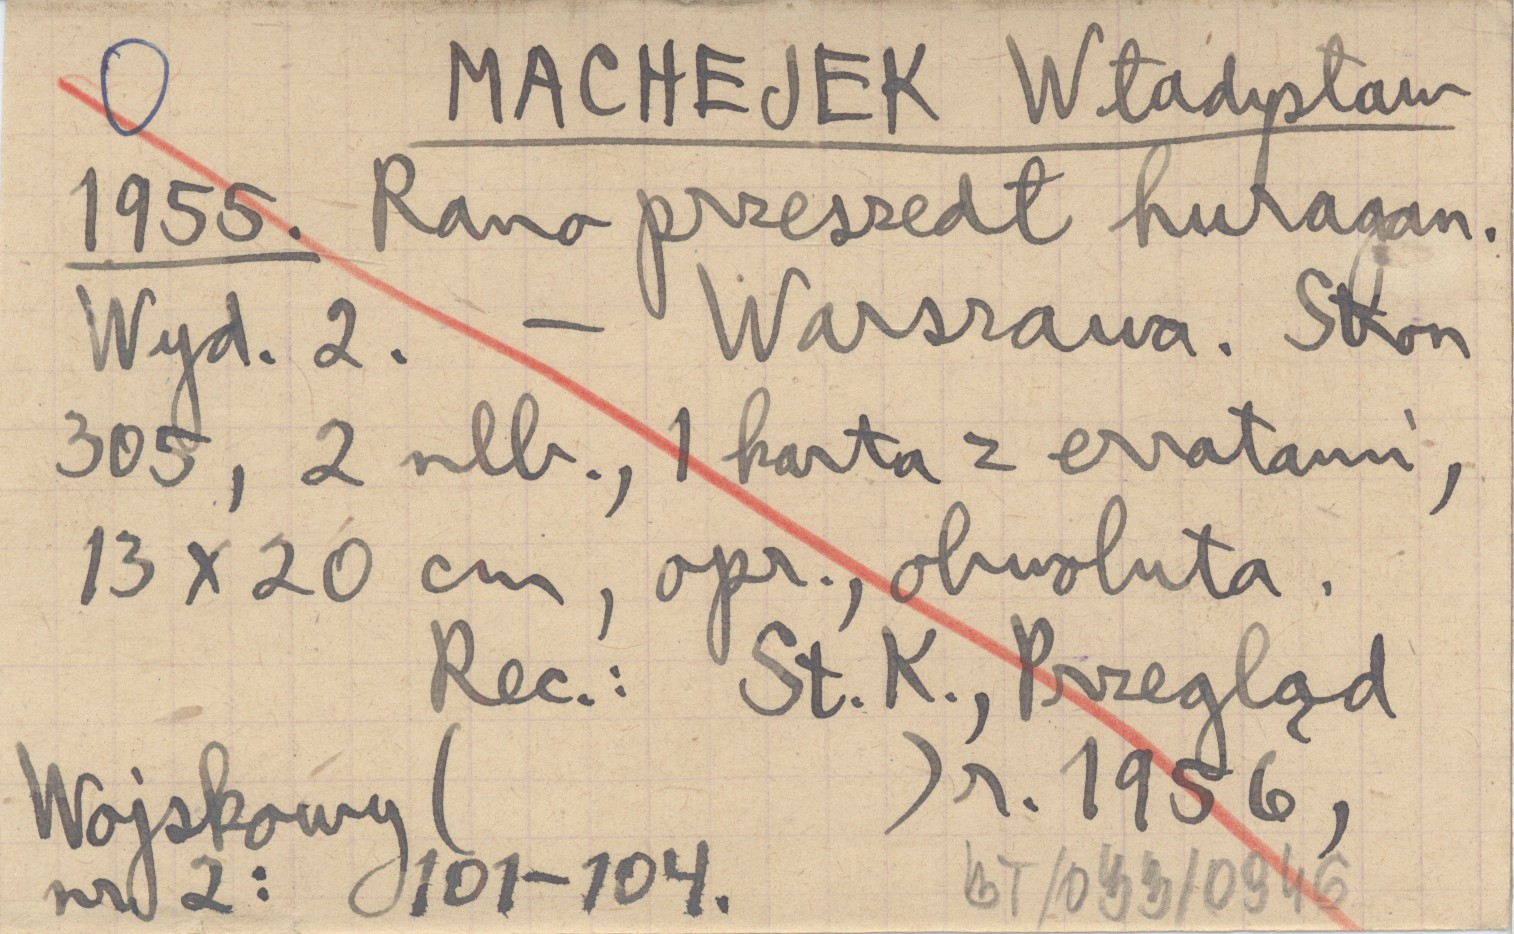 MACHEJEK Władysław
1955. Rano przeszedł huragan.
Wyd. 2. — Warszawa. Stron
305, 2 nlb., 1 karta z erratami,
13 x 20 cm, opr., obwoluta.
Rec.: St. K., Przegląd
Wojskowy ( ) r. 1956,
nr 2: 101-104.